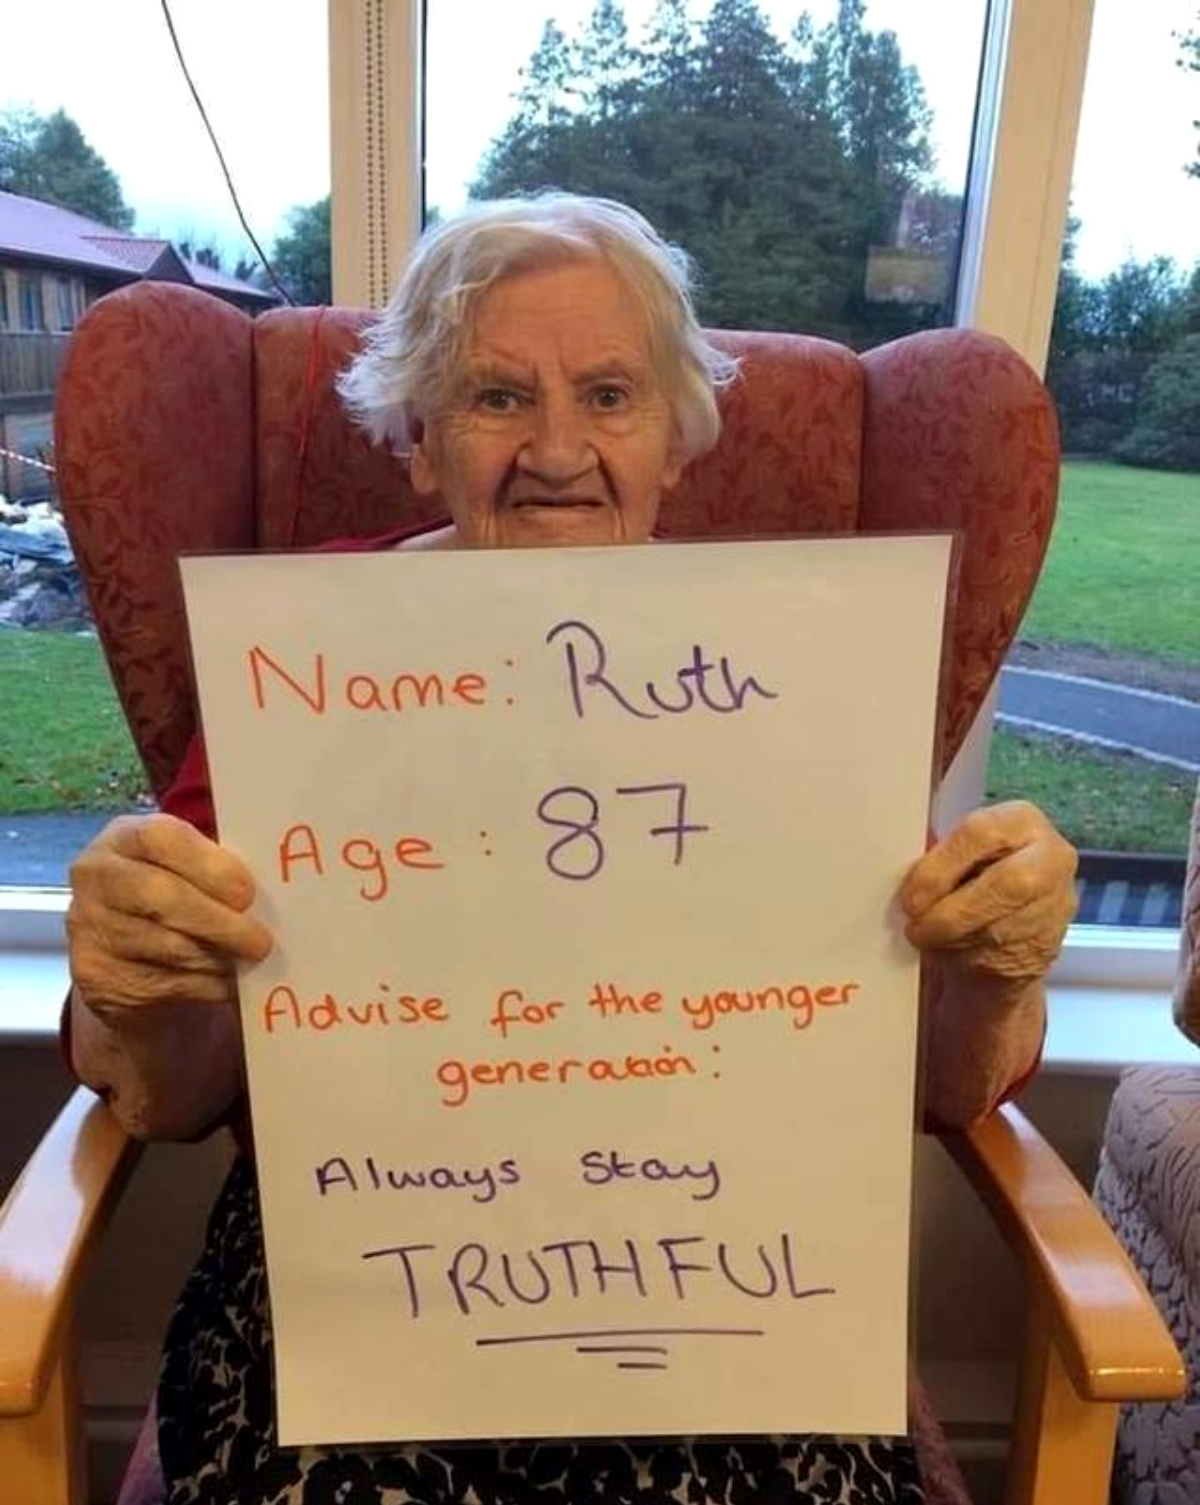 Name: Ruth
Age: 87
Advise for the younger
generation:
Always stay
TRUTHFUL